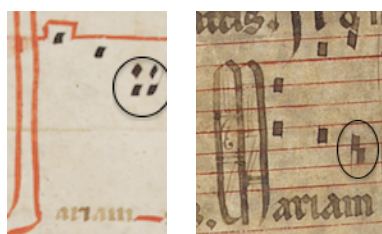 ariam
Mariam